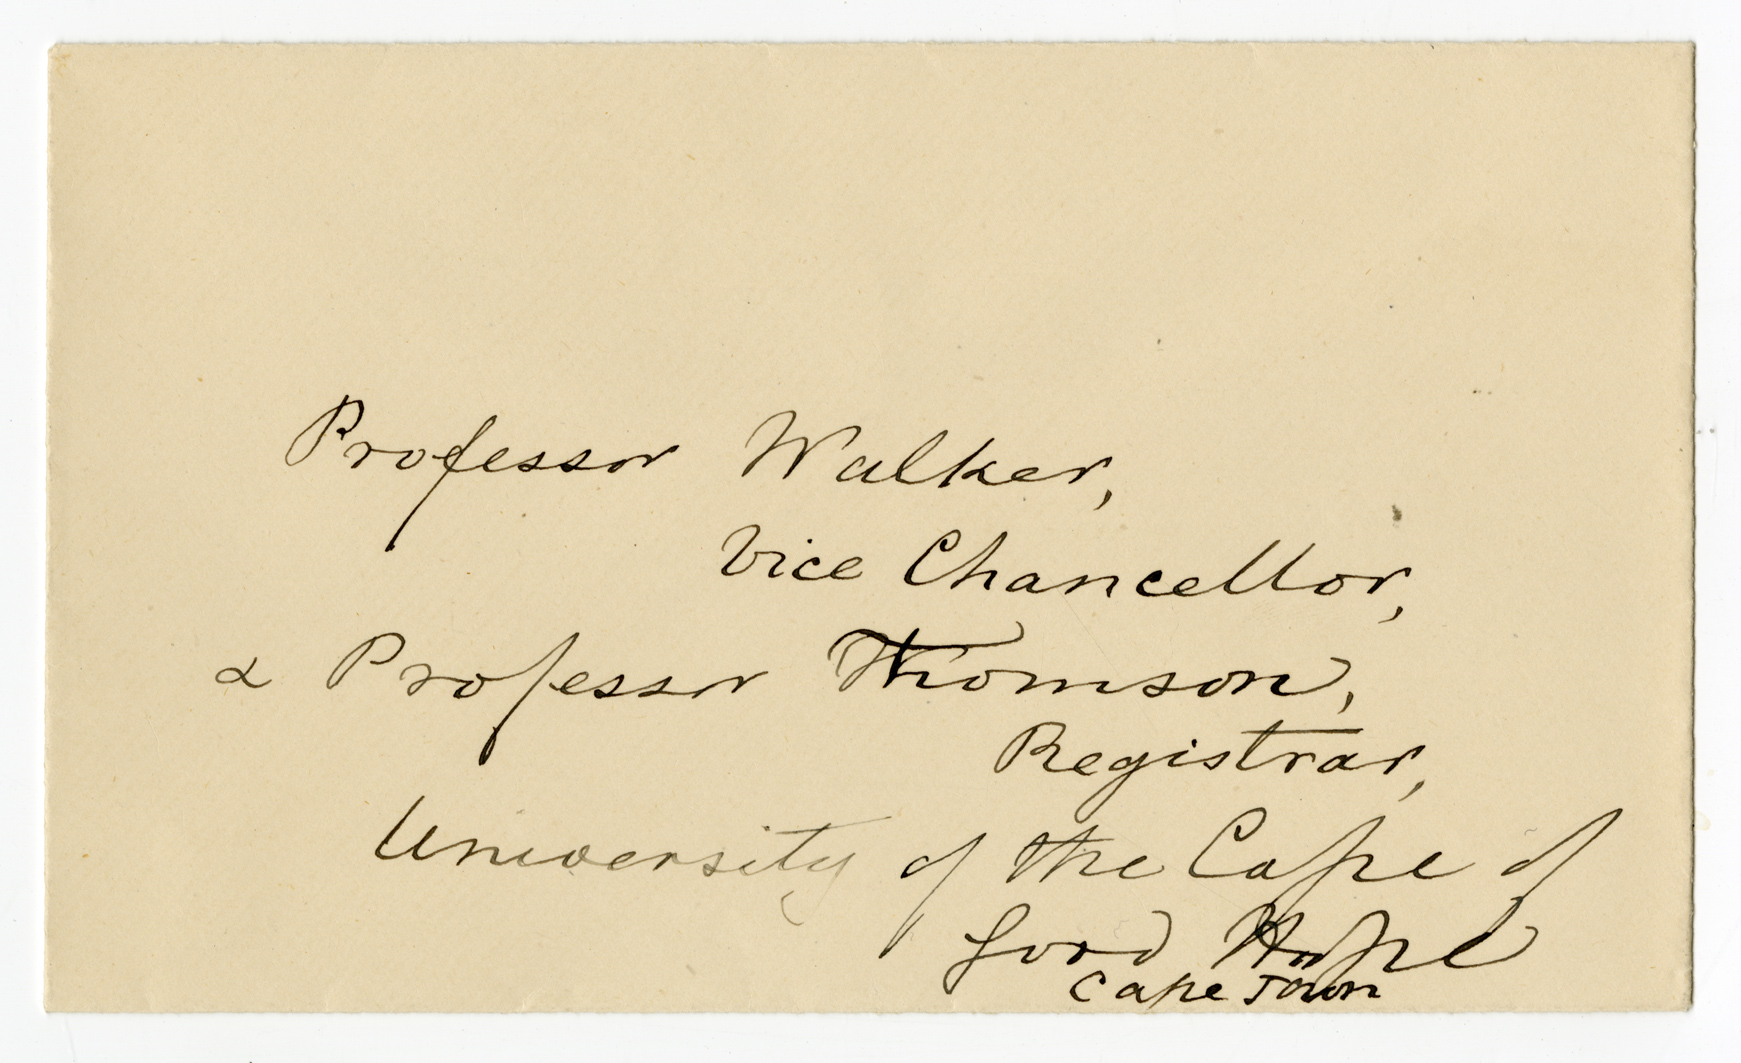 Professor Walker,
Vice Chancellor,
& Professor Thomson,
Registrar,
University of the Cape of
Good Hope
Cape Town